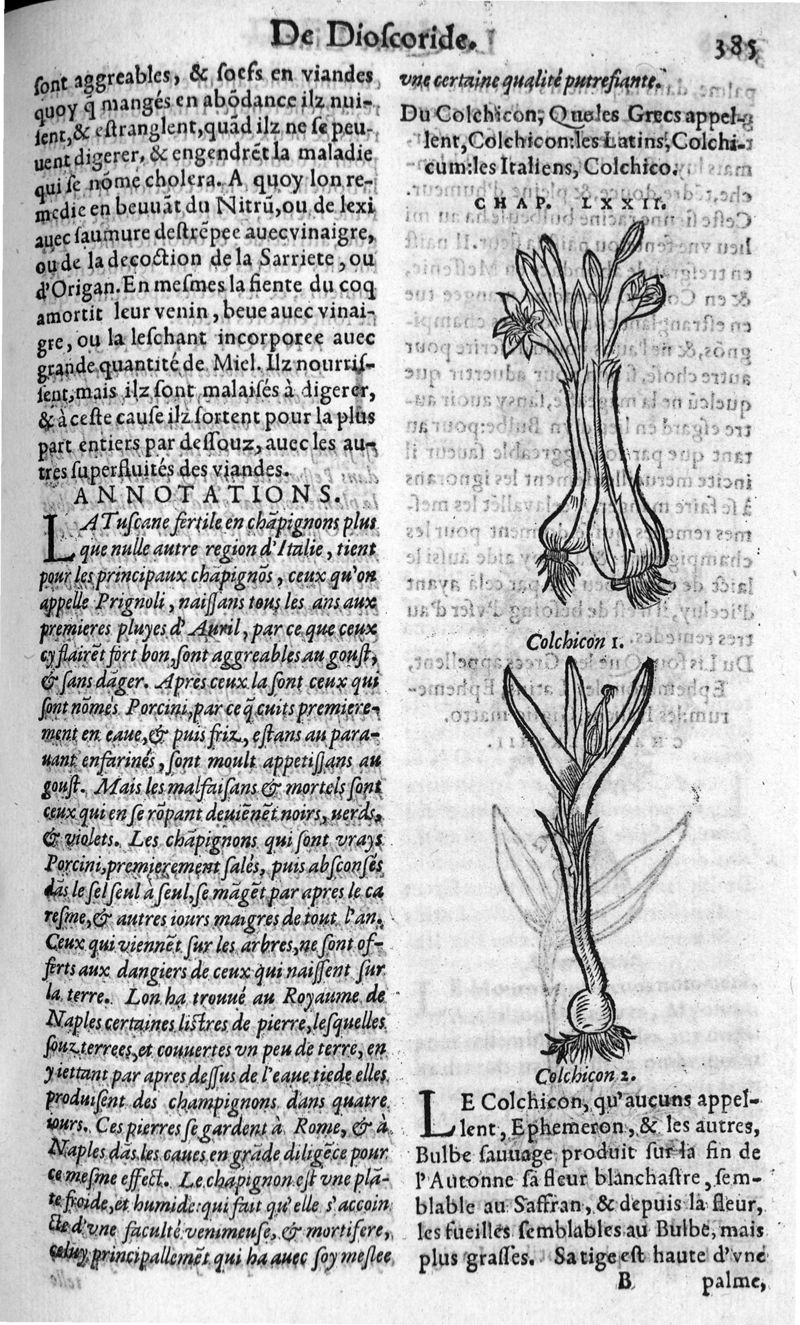 De Dioſcoride.
385
ſont aggreables, & ſoefs en viandes
quoy q̃ mangés en abõdance ilz nui-
ſent, & eſtranglent, quãd ilz ne ſe peu-
uent digerer, & engendrẽt la maladie
qui ſe nõme cholera. A quoy lon re-
medie en beuuãt du Nitrũ, ou de lexi
auec ſaumure deſtrẽpee auec vinaigre,
ou de la decoction de la Sarriete, ou
d'Origan. En meſmes la fiente du coq
amortit leur venin, beue auec vinai-
gre, ou la leſchant incorporee auec
grande quantité de Miel. Ilz nourriſ-
ſent, mais ilz ſont malaiſés à digerer,
& à ceſte cauſe ilz ſortent pour la plus
part entiers par deſſouz, auec les au-
tres ſuperfluités des viandes.
ANNOTATIONS.
LA Tuſcane fertile en chãpignons plus
que nulle autre region d'Italie, tient
pour les principaux chãpignõs, ceux qu'on
appelle Prignoli, naiſſans tous les ans aux
premieres pluyes d'Auril, par ce que ceux
cy flairẽt fort bon, ſont aggreables au gouſt,
& ſans dãger. Apres ceux la ſont ceux qui
ſont nõmés Porcini, par ce q̃ cuits premiere-
ment en eaue, & puis friz, eſtans au para-
uant enfarinés, ſont moult appetiſſans au
gouſt. Mais les malfaiſans & mortels ſont
ceux qui en ſe rõpant deuiẽnẽt noirs, uerds,
& violets. Les chãpignons qui ſont vrays
Porcini, premierement ſalés, puis abſconſés
dãs le ſel ſeul à ſeul, ſe mãgẽt par apres le ca
reſme, & autres iours maigres de tout l'an.
Ceux qui viennẽt ſur les arbres, ne ſont of-
ferts aux dangiers de ceux qui naiſſent ſur
la terre. Lon ha trouué au Royaume de
Naples certaines liſtres de pierre, leſquelles
ſouz terrees, et couuertes vn peu de terre, en
y iettant par apres deſſus de l'eaue tiede elles
produiſent des champignons dans quatre
iours. Ces pierres ſe gardent à Rome, & à
Naples dãs les caues en grãde diligẽce pour
ce meſme effect. Le chãpignon eſt vne plã-
te froide, et humide: qui fait qu'elle s'accoin
cte d'vne faculté venimeuſe, & mortifere,
celuy principallemẽt qui ha auec ſoy meſlee
vne certaine qualité putrefiante.
Du Colchicon, Que les Grecs appel-
lent, Colchicon: les Latins, Colchi-
cum: les Italiens, Colchico.
CHAP. LXXII.
Colchicon 1.
Colchicon 2.
LE Colchicon, qu'aucuns appel-
lent, Ephemeron, & les autres,
Bulbe ſauuage produit ſur la fin de
l'Autonne ſa fleur blanchaſtre, ſem-
blable au Saffran, & depuis la fleur,
les fueilles ſemblables au Bulbe, mais
plus graſſes. Sa tige eſt haute d'vne
B palme,